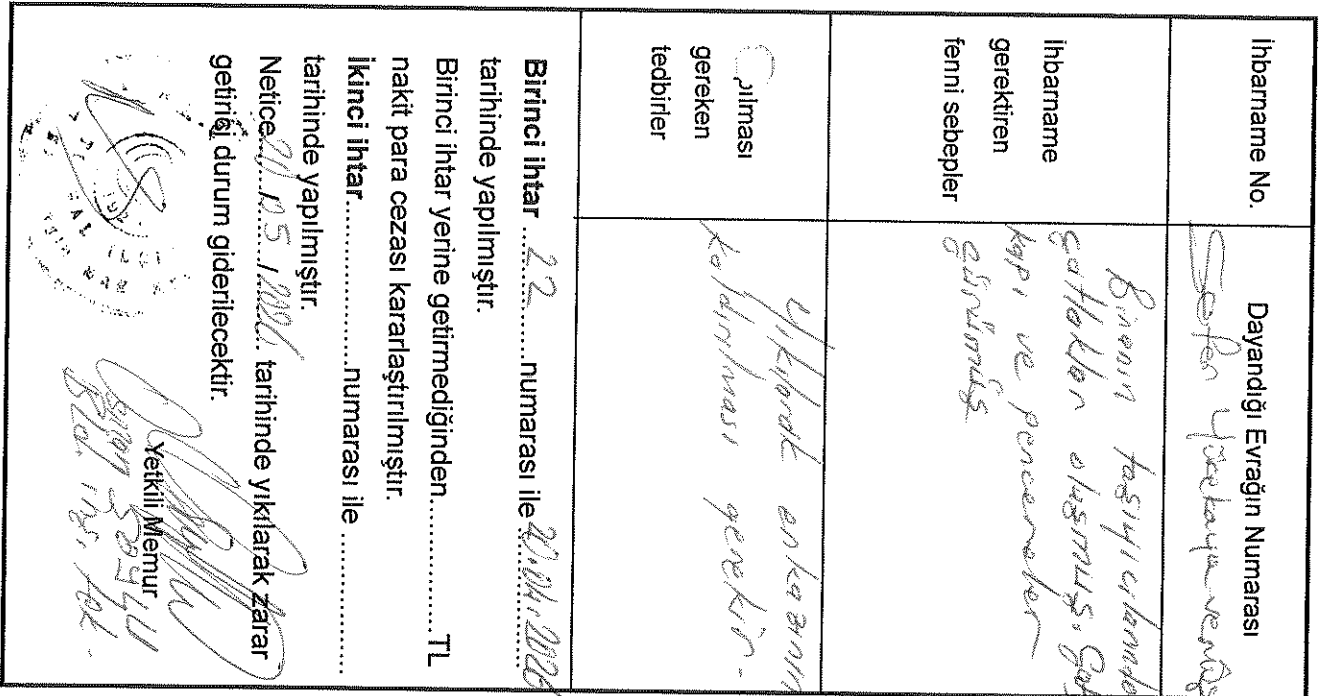 İhbarname No.
Dayandığı Evrağın Numarası
İhbarname
gerektiren
fenni sebepler
Binanın taşıyıcılarında
çatlaklar oluşmuş.
kapı ve pencereler
çürümüş
ılması
gereken
tedbirler
Yıkılarak enkazının
kaldırılması gerekir.
Birinci ihtar ....22.........numarası ile 20.04.2026
tarihinde yapılmıştır.
Birinci ihtar yerine getirmediğinden...............TL
nakit para cezası kararlaştırılmıştır.
İkinci ihtar....................numarası ile ................
tarihinde yapılmıştır.
Netice 21/05/2026 tarihinde yıkılarak zarar
getirici durum giderilecektir.
Yetkili Memur